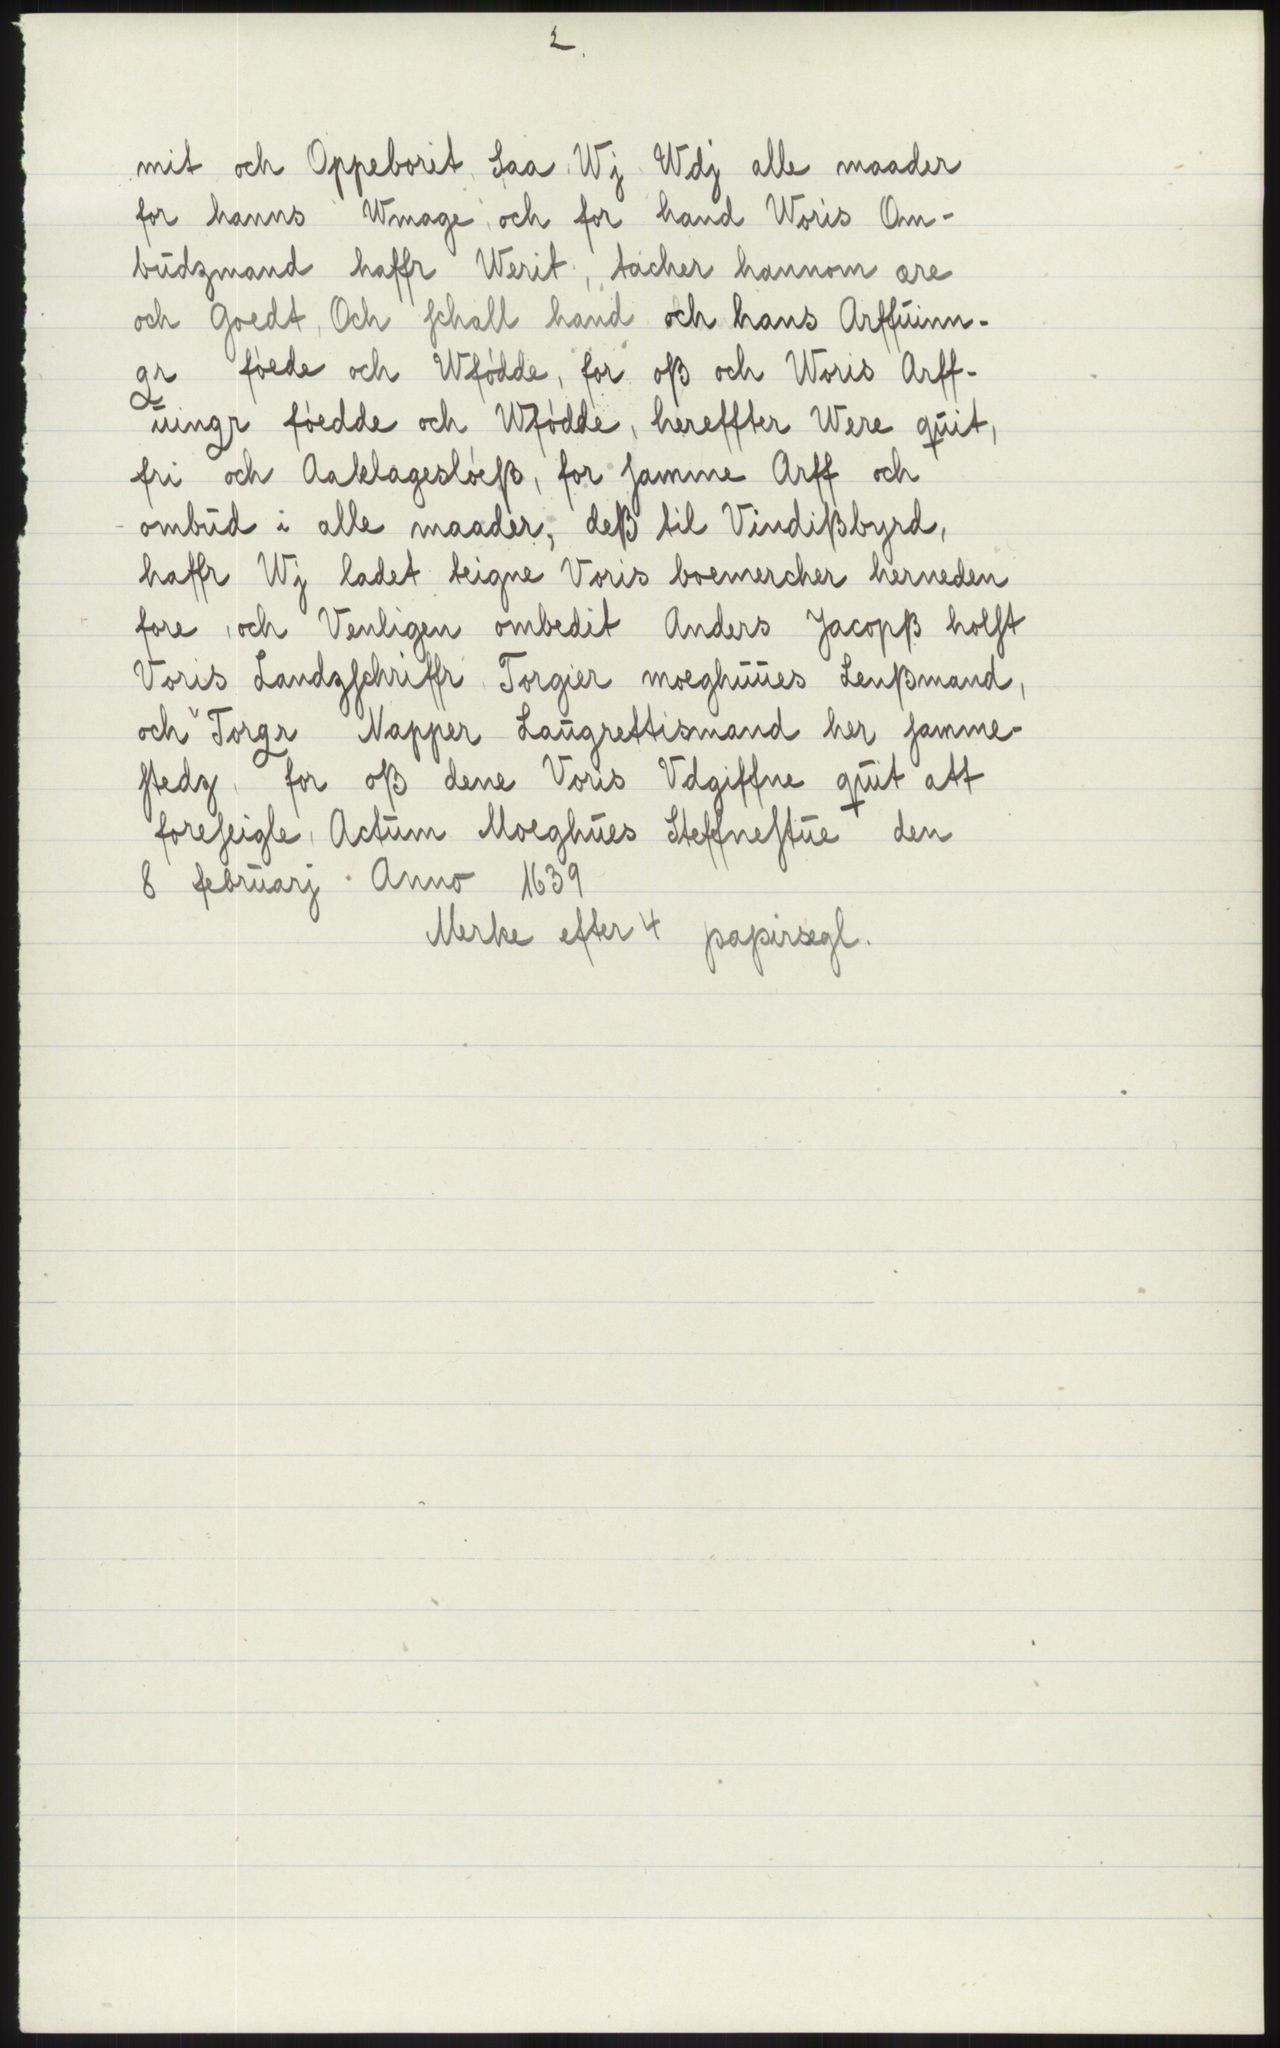 2.
mit och Oppeborit, Saa Wj Wdj alle maader
for hanns Wmage, och for hand Woris Om-
bŭdzmand haffr Werit, tacher hannom ære
och Goedt, Och schall hand och hans Arffŭinn-
gr føede och Wfødde, for oß och Woris Arff-
ŭingr føedde och Wfødde, hereffter Were qŭit,
fri och Aaklagesløeß, for samme Arff och
ombŭd i alle maader, deß til Vindißbyrd,
haffr Wj ladet teigne Voris boemercher herneden
fore, och Venligen ombedit Anders Jacopß holst
Voris Landzschriffr Torgier moeghŭŭes Lenßmand,
och Torgr Napper Laŭgrettismand her samme-
stedz, for oß dene Voris Vdgiffne qŭit att
foreseigle, Actŭm Moeghŭes Steffnestŭe den
8 febrŭarj Anno 1639
Merke efter 4 papirsegl.